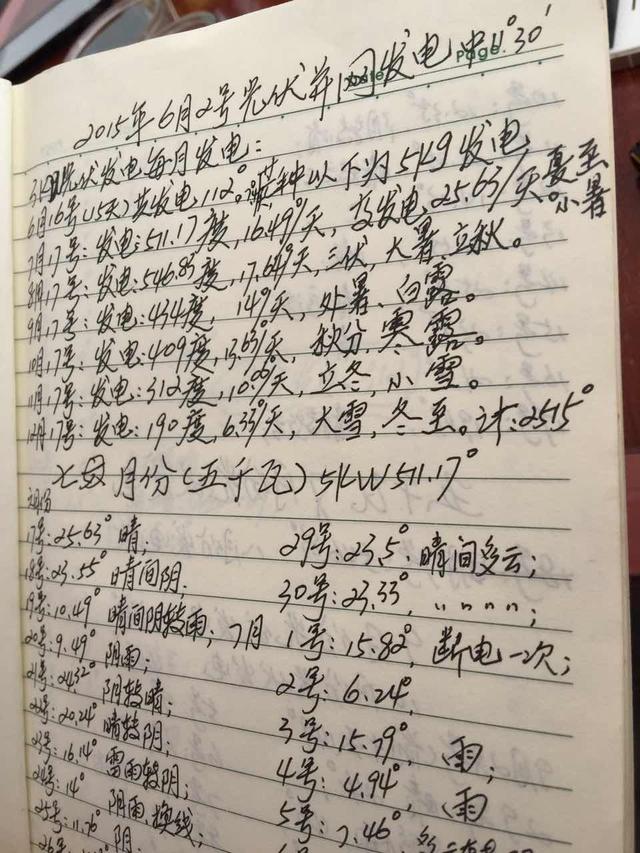 2015年6月2号光伏并网发电中11°30′
Page.
光伏发电每月发电:
6月16号(15天)共发电112°。芒种以下为5K9发电
7月17号:发电:511.17度,16.49°/天,发电25.63/天。夏至小暑
8月17号:发电:546.83度,17.64°/天,三伏,大暑,立秋。
9月17号:发电:434度,14°/天,处暑、白露。
10月17号:发电:409度,13.63°/天,秋分,寒露。
11月17号:发电:312度,10.06°/天,立冬,小雪。
12月17号:发电:190度,6.33°/天,大雪,冬至。计:2515°
七月份(五千瓦)5KW511.17°
17号:25.63°晴; 29号:23.5°晴间多云;
18号:23.55°晴间阴. 30号:23.33°,〃〃〃〃;
19号:10.49°晴间阴转雨; 7月1号:15.82°,断电一次;
20号:9.49°阴雨; 2号:6.24°,
21号:24.32°阴转晴; 3号:15.79°,雨;
22号:20.24°晴转阴; 4号:4.94°,雨
23号:16.14°雷雨转阴; 5号:7.46°,
24号:14°阴雨,换线;
25号:11.76°阴.
26号: